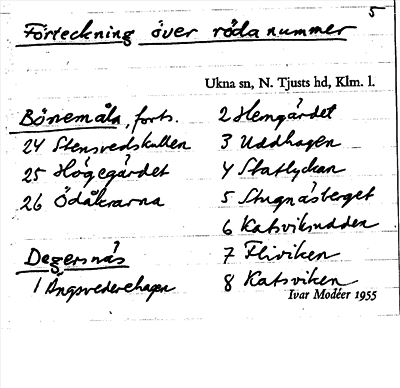 5
Förteckning över röda nummer
Ukna sn, N. Tjusts hd, Klm. l.
Bönemåla, forts.
24 Stensvedskullen
25 Högegärdet
26 Ödåkrarna
Degersnäs
1 Ängsvederehagen
2 Hemgärdet
3 Uddhagen
4 Statlyckan
5 Stugnäsberget
6 Katsviksudden
7 Fliviken
8 Katsviken
Ivar Modéer 1955